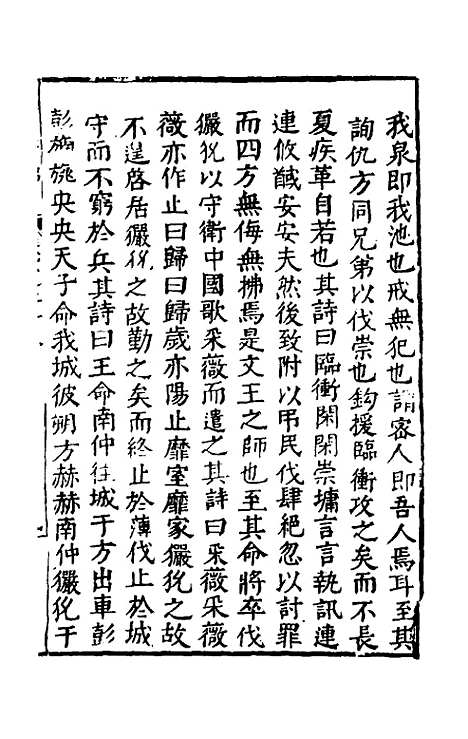 我泉即我池也戒無犯也謂密人即吾人焉耳至其
詢仇方同兄弟以伐崇也鈎援臨衝攻之矣而不長
夏疾革自若也其詩曰臨衝閑閑崇墉言言執訊連
連攸馘安安夫然後致附以弔民伐肆絕忽以討罪
而四方無侮無拂焉是文王之師也至其命將卒伐
玁狁以守衛中國歌采薇而遣之其詩曰采薇采薇
薇亦作止曰歸曰歸歲亦陽止靡室靡家玁狁之故
不遑啓居玁狁之故勤之矣而終止於薄伐止於城
守而不窮於兵其詩曰王命南仲往城于方出車彭
彭旂旐央央天子命我城彼朔方赫赫南仲玁狁于